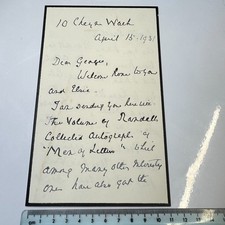 10 Cheyne Walk
April 15. 1931
Dear George,
Welcome home to you
and Elsie.
I am sending you herewith
The Volume of
Collected Autographs of
"Men of Letters" – that
among many other interesting
ones have also got the